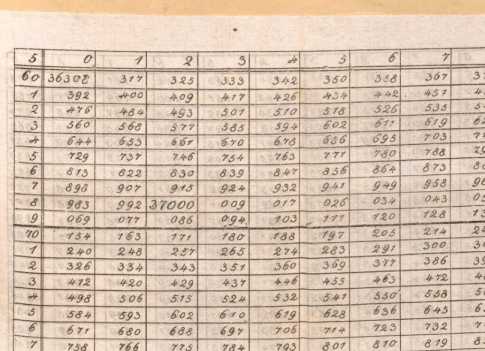 5 0 1 2 3 4 5 6 7
60 36308 317 325 333 342 350 358 367
1 392 400 409 417 426 434 442 451
2 476 484 493 501 510 518 526 535
3 560 568 577 585 594 602 611 619
4 644 653 661 670 678 686 695 703
5 729 737 746 754 763 771 780 788
6 813 822 830 839 847 856 864 873
7 898 907 915 924 932 941 949 958
8 983 992 37000 009 017 026 034 043
9 069 077 086 094 103 111 120 128
70 154 163 171 180 188 197 205 214
1 240 248 257 265 274 283 291 300
2 326 334 343 351 360 369 377 386
3 412 420 429 437 446 455 463 472
4 498 506 515 524 532 541 550 558
5 584 593 602 610 619 628 636 645
6 671 680 688 697 706 714 723 732
7 758 766 775 784 793 801 810 819